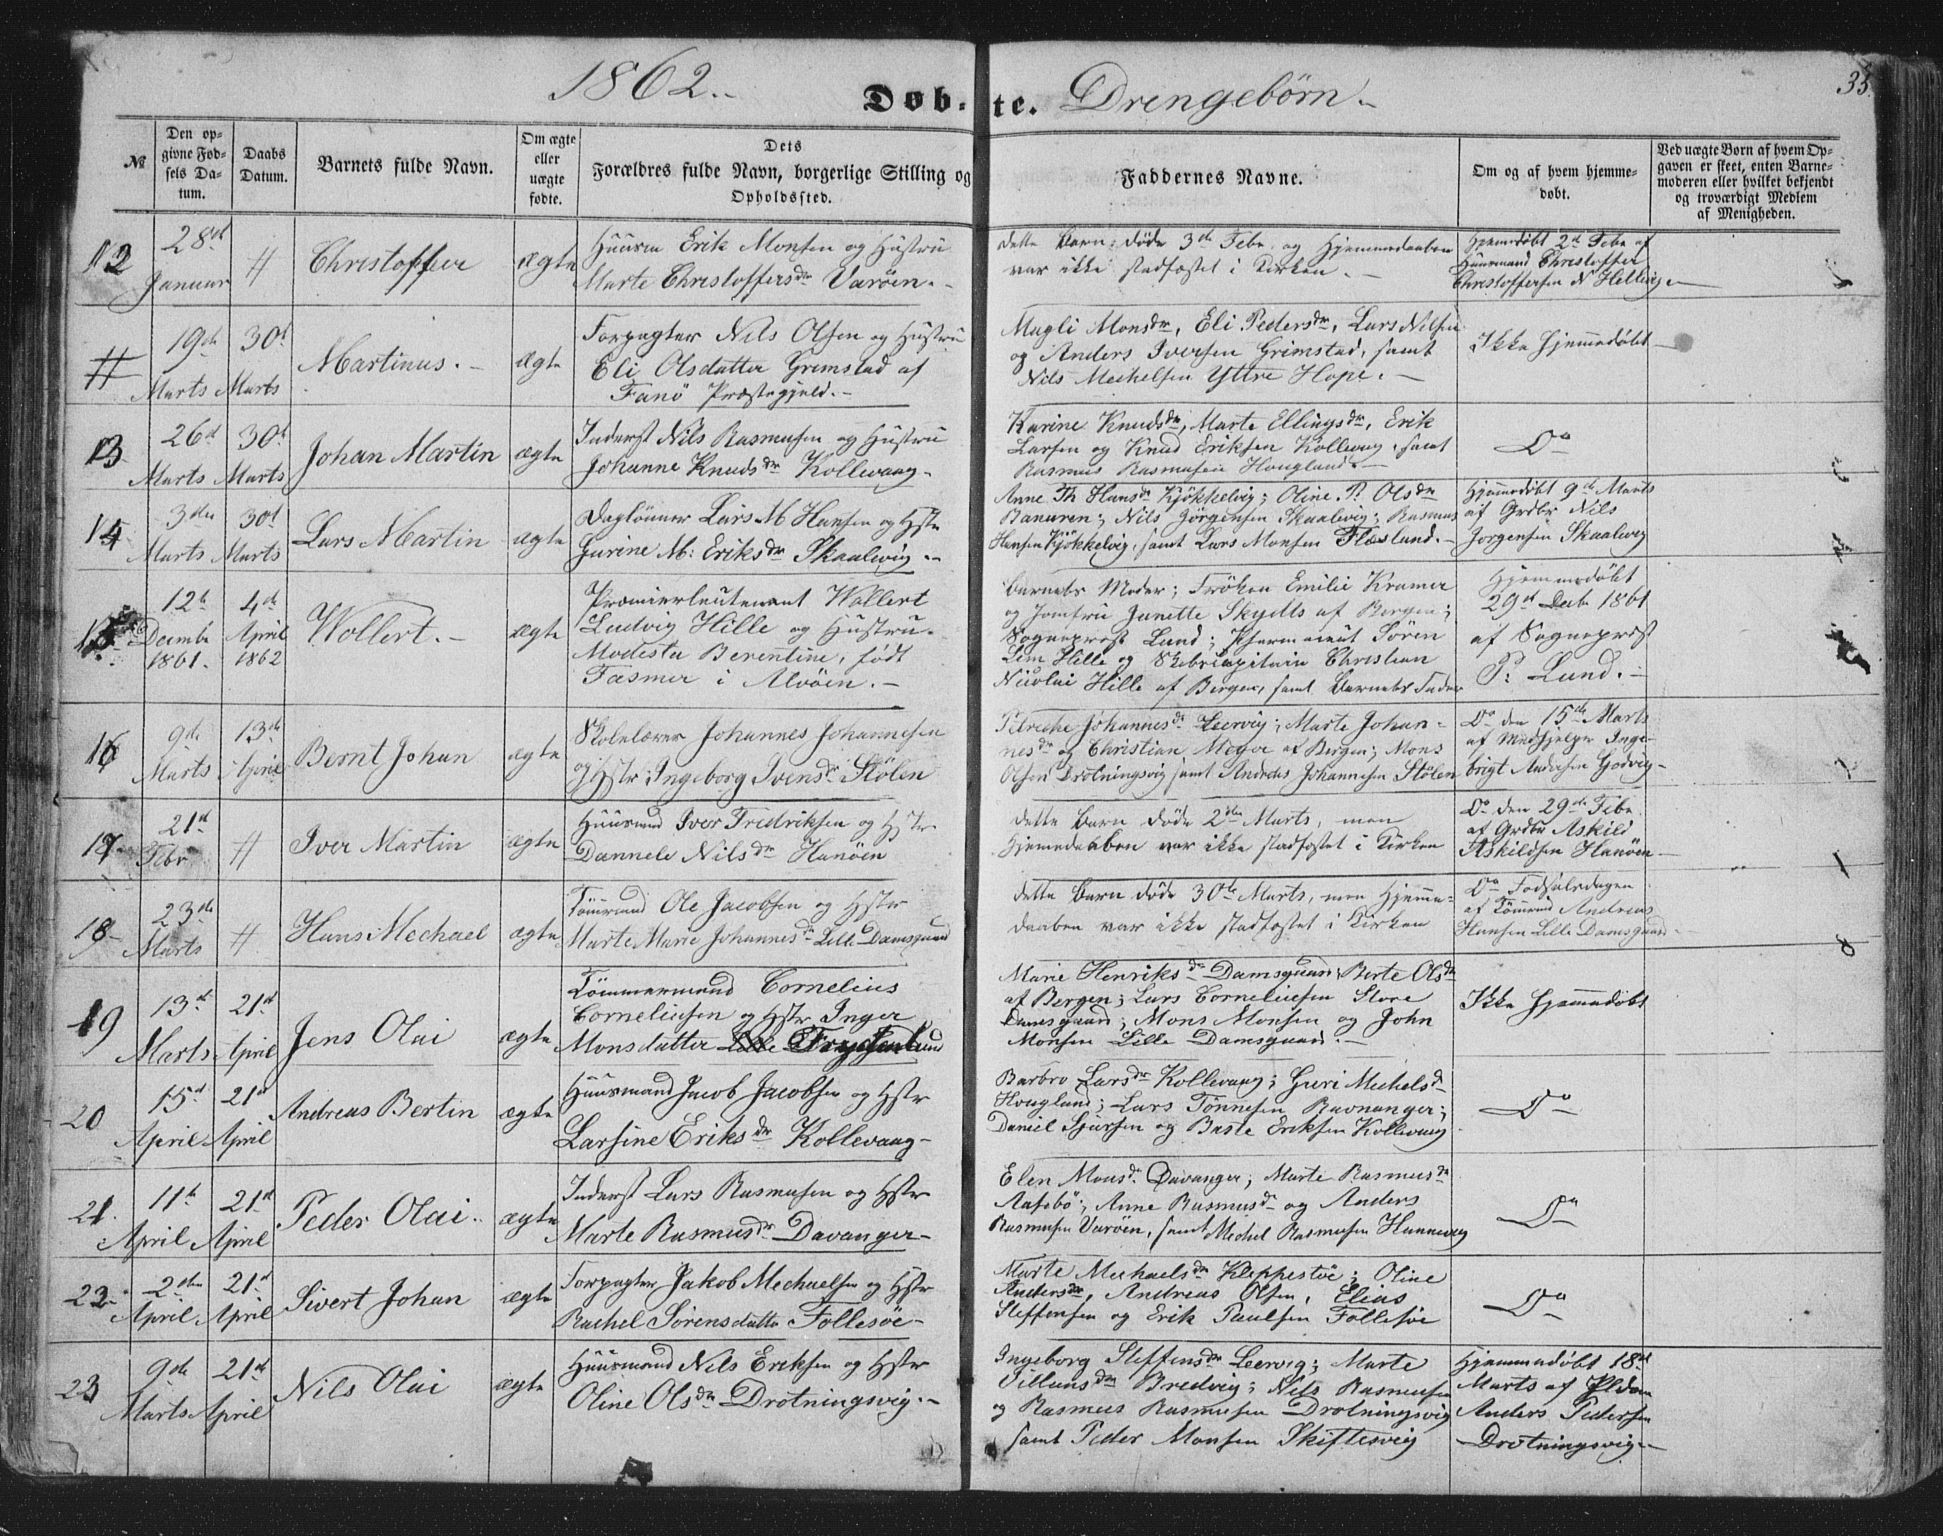 1862.
Døb-te. Drengebørn.
35.
№
Den opgivne Fødsels Datum.
Daabs Datum.
Barnets fulde Navn.
Om ægte eller uægte fødte.
Dets Forældres fulde Navn, borgerlige Stilling og Opholdssted.
Faddernes Navne.
Om og af hvem hjemmedøbt.
Ved uægte Børn af hvem Opgaven er skeet, enten Barnemoderen eller hvilket bekjendt og troværdigt Medlem af Menigheden.
12
28de Januar
"
Christoffer
ægte
Huusm Erik Monsen og Hustru
Marte Christoffersdr Varøen.
dette Barn døde 3de Febr. og Hjemmedaaben
var ikke stadfæstet i Kirken.
Hjemmedøbt 2d Febr af
Huusmand Christoffer
Christoffersen N Hellevig
"
19de Marts
30t Marts
Martinus.
ægte
Forpagter Nils Olsen og Hustru
Eli Olsdatter Grimstad af
Fanø Præstegjeld.
Magli Monsdr, Eli Pedersdr, Lars Nilsen
og Anders Iversen Grimstad, samt
Nils Mechelsen Yttre Hope.
Ikke hjemmedøbt
13
26d Marts
30t Marts
Johan Martin
ægte
Inderst Nils Rasmusen og Hustru
Johanne Knudsdr Kollevaag
Karine Knudsdr, Marte Ellingsdr, Erik
Larsen og Knud Eriksen Kollevaag, samt
Rasmus Rasmusen Hougland.
Do
14
3den Marts
30t Marts
Lars Martin
ægte
Daglønner Lars M Hansen og Hstr
Gurine M: Eriksdr Skaalevig.
Anne Th Hansdr Kjøkkelvig; Oline P. Olsdr
Banuren; Nils Jørgensen Skaalevig; Rasmus
Hansen Kjøkkelvig, samt Lars Monsen Flesland.
Hjemmedøbt 9de Marts
af Grdbr Nils
Jørgensen Skaalevig
15
12te Decmbr 1861.
4de April 1862
Wollert.
ægte
Premierleutenant Wollert
Ludvig Hille og Hustru
Modesta Berentine, født
Fasmer i Alvøen.
Barnets Moder; Frøken Emilie Kramer
og Jomfru Janette Skydts af Bergen;
Sognepræst Lund; Søren
Lem Hille og Skibscapitain Christian
Nicolai Hille af Bergen, samt Barnets Fader
Hjemmedøbt
29de Decbr 1861
af Sognepræst
P: Lund.
16
9de Marts
13de April
Bernt Johan
ægte
Skolelærer Johannes Johannesen
og Hstr Ingeborg Ivensdr Stølen
Johannesdr Leervig; Marte Johan-
nesdr og Christian Meyer af Bergen; Mons
Olsen Drotningsvig samt Andreas Johannesen Stølen
Do den 15de Marts
af Medhjelper Inge-
brigt Andersen Godvig
17
21d Febr
"
Iver Martin
ægte
Huusmand Iver Fredriksen og Hstr
Dannele Nilsdr Hanøen
dette Barn døde 2den Marts, men
Hjemmedaaben var ikke stadfæstet i Kirken
Do den 29de Febr.
af Grdbr Askild
Askildsen Hanøen
18
23de Marts
"
Hans Mechael
ægte
Tømrmd Ole Jacobsen og Hstr
Marte Marie Johannesdr Lille Damsgaard
dette Barn døde 30te Marts, men Hjemme-
daaben var ikke stadfæstet i Kirken
Do Fødselsdagen
af Tømrmd Andreas
Hansen Lille Damsgaard
19
13de Marts
21d April
Jens Olai
ægte
Tømmermand Cornelius
Corneliusen og Hstr Inger
Monsdatter Lille
Marie Henriksdr Damsgaard; Berte Olsdr
af Bergen; Lars Corneliusen Store
Damsgaard; Mons Monsen og John
Monsen Lille Damsgaard.
Ikke hjemmedøbt
20
15d April
21d April
Andreas Bertin
ægte
Huusmand Jacob Jacobsen og Hstr
Larsine Eriksdr Kollevaag
Barbro Larsdr Kollevaag; Guri Mechelsdr
Hougland; Lars Tønnesen Ravnanger;
Daniel Sjursen og Baste Eriksen Kollevaag
Do
21.
11te April
21d April
Peder Olai.
ægte
Inderst Lars Rasmusen og Hstr
Marte Rasmusdr Davanger
Elen Monsdr Davanger; Marte Rasmusdr
Aasebø; Anne Rasmusdr og Anders
Rasmusen Varøen, samt Mechel Rasmusen Hannevig
Do
22
2den April
21d April
Sivert Johan
ægte
Forpagter Jakob Mechaelsen og Hstr
Rachel Sørensdatter Follesøe
Marte Mechaelsdr Kleppestøe; Oline
Andersdr, Andreas Olsen, Elias
Steffensen og Erik Paulsen Follesøe
Do
23
9de Marts
21d April
Nils Olai
ægte
Huusmand Nils Eriksen og Hstr
Oline Olsdr Drotningsvig.
Ingeborg Steffensdr Leervig; Marte
Villumsdr Bredvig; Nils Rasmusen
og Rasmus Rasmusen Drotningsvig
samt Peder Monsen Skiftesvig
Hjemmedøbt 18de
Marts af
Anders Pedersen
Drotningsvig